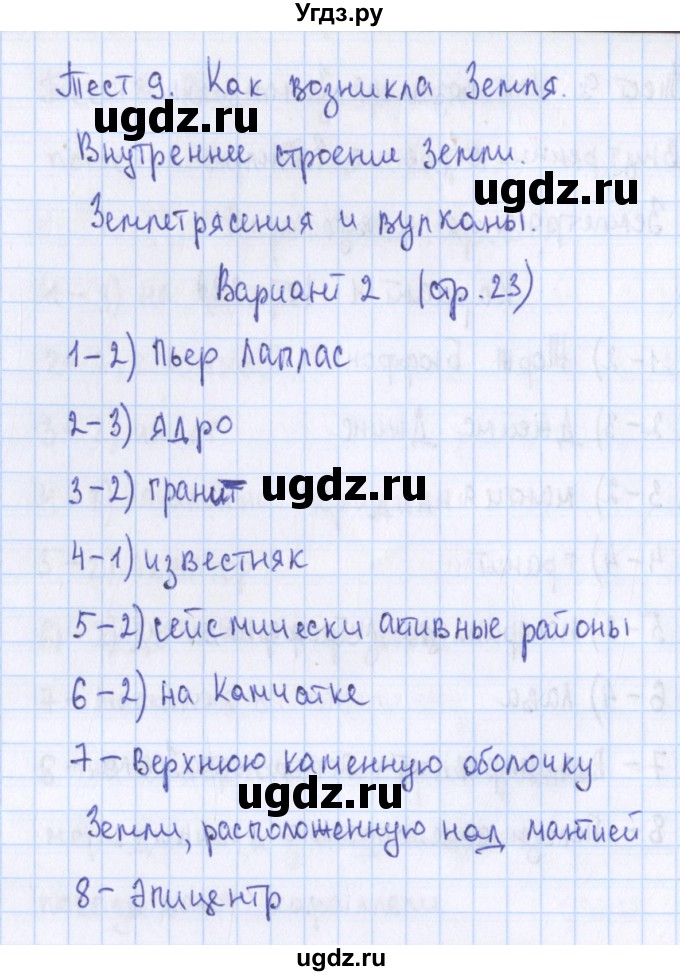 Угдз.ру
Тест 9. Как возникла Земля.
ugdz.ru
Внутреннее строение Земли.
ugdz.ru
Землетрясения и вулканы.
Вариант 2 (стр. 23)
1-2) Пьер Лаплас
2-3) Ядро
3-2) гранит ugdz.ru
4-1) известняк
5-2) сейсмически активные районы
6-2) на Камчатке
7 - Верхнюю каменную оболочку
ugdz.ru
Земли, расположенную над мантией
8 - Эпицентр
ugdz.ru
ugdz.ru